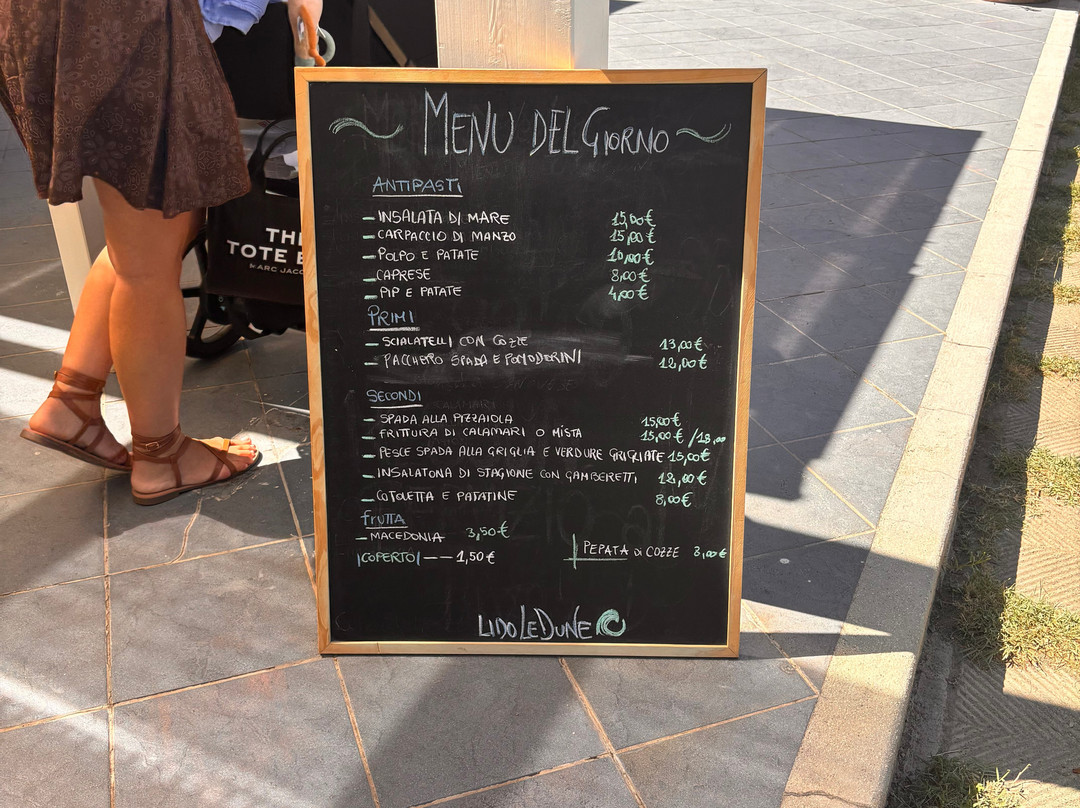 MENU DEL GIORNO
ANTIPASTI
- INSALATA DI MARE 15,00€
- CARPACCIO DI MANZO 15,00€
- POLPO E PATATE 10,00€
- CAPRESE 8,00€
- PIP E PATATE 4,00€
PRIMI
- SCIALATELLI CON COZZE 13,00€
- PACCHERO SPADA E POMODORINI 12,00€
SECONDI
- SPADA ALLA PIZZAIOLA 15,00€
- FRITTURA DI CALAMARI O MISTA 15,00€ /18,00
- PESCE SPADA ALLA GRIGLIA E VERDURE GRIGLIATE 15,00€
- INSALATONA DI STAGIONE CON GAMBERETTI 12,00€
- COTOLETTA E PATATINE 8,00€
FRUTTA
- MACEDONIA 3,50€
|COPERTO| -- 1,50€
PEPATA DI COZZE 8,00€
LIDO LE DUNE
TH
TOTE B
MARC JACO